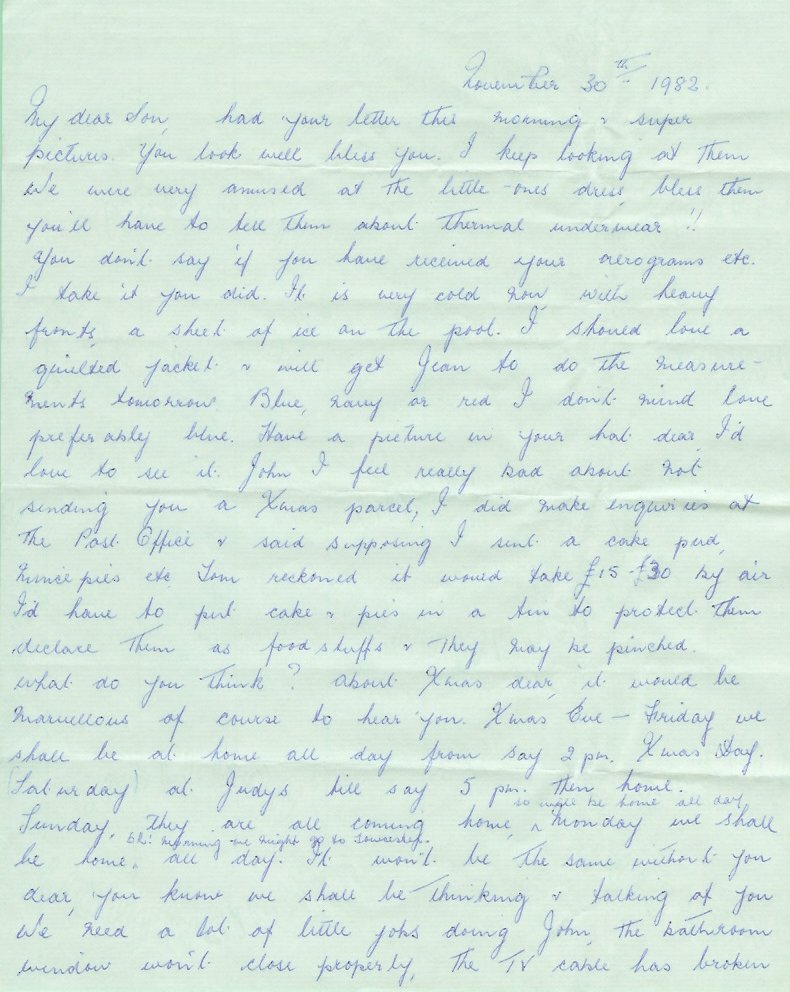 November 30th 1982.
My dear Son, had your letter this morning & super
pictures. You look well bless you. I keep looking at them
We were very amused at the little ones dress, bless them
you'll have to tell them about thermal underwear !!
You don't say if you have received your aerograms etc.
I take it you did. It is very cold now, with heavy
fronts, a sheet of ice on the pool. I should love a
quilted jacket & will get Jean to do the measure-
ments tomorrow. Blue, navy or red I don't mind love
preferably blue. Have a picture in your hat dear, I'd
love to see it. John I feel really bad about not
sending you a Xmas parcel, I did make enquiries at
the Post Office & said supposing I sent a cake pud,
mince pies etc. Tom reckoned it would take £15-£30 by air
I'd have to put cake & pies in a tin to protect them
declare them as food stuffs & they may be pinched.
what do you think? About Xmas dear, it would be
marvellous of course to hear you. Xmas Eve – Friday we
shall be at home all day from say 2 pm. Xmas Day.
(Saturday) at Judys till say 5 pm. then home.
so will be home all day
Sunday, they are all coming home, ^ Monday we shall
morning we might go to
be home, all day. It won't be the same without you
dear, you know we shall be thinking & talking of you
We need a lot of little jobs doing John, the bathroom
window won't close properly, the TV cable has broken